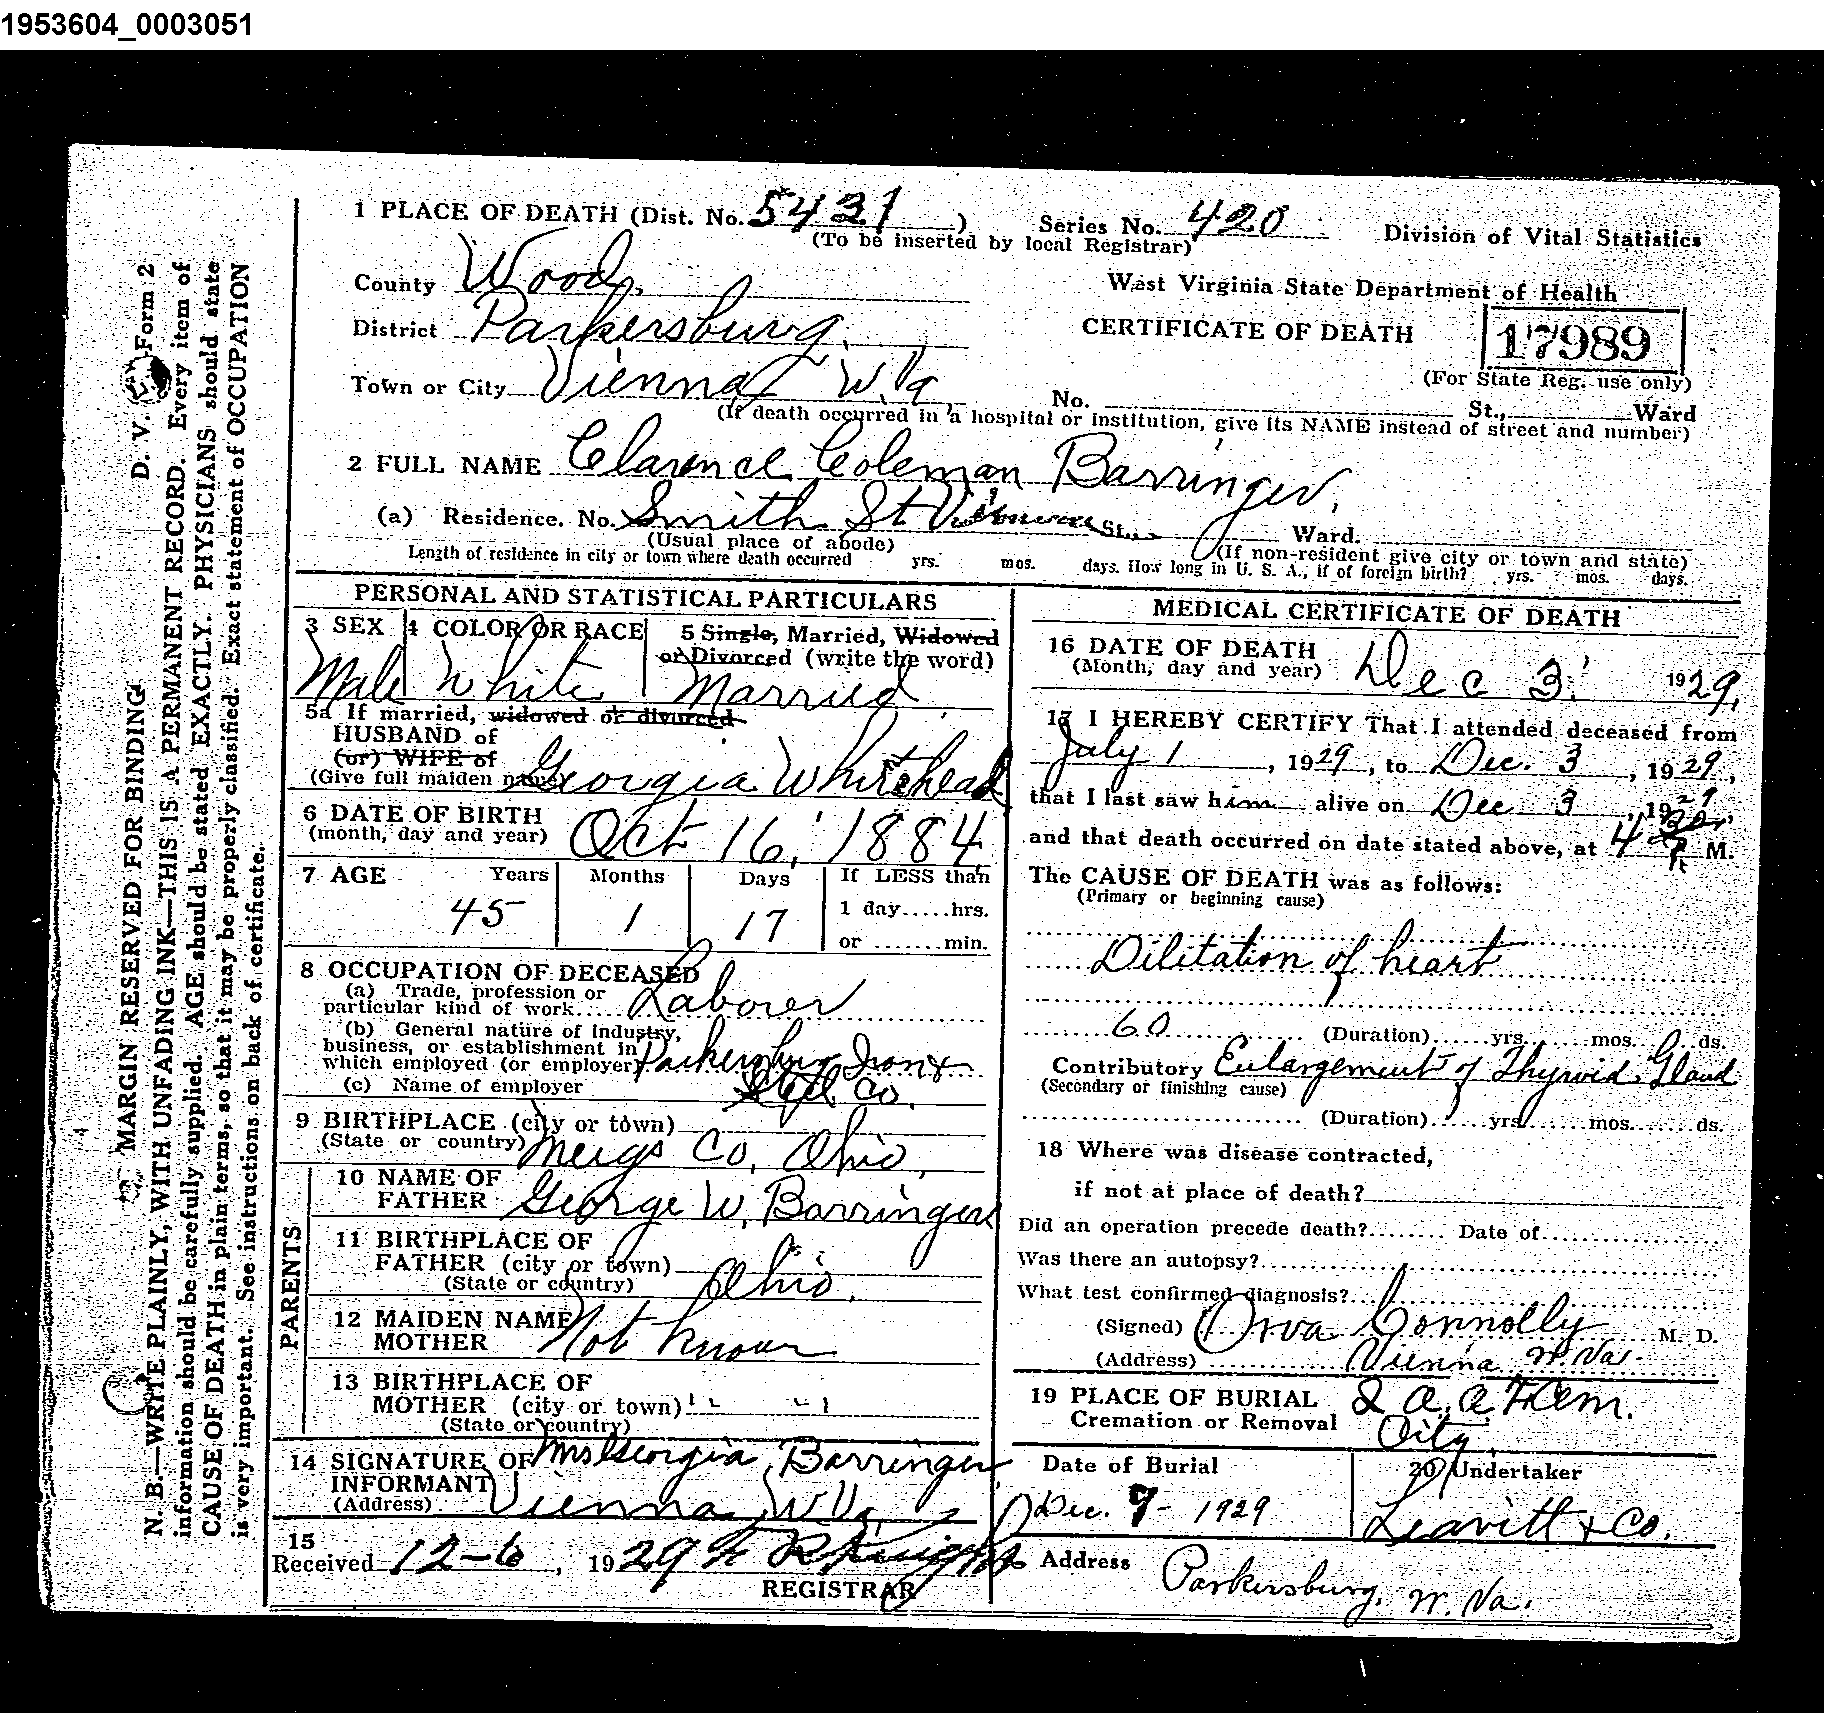 1953604_0003051
1 PLACE OF DEATH (Dist. No. 5431 ) Series No. 420 Division of Vital Statistics
(To be inserted by local Registrar)
County Wood, West Virginia State Department of Health
District Parkersburg. CERTIFICATE OF DEATH 17989
(For State Reg. use only)
Town or City Vienna W. Va No. St., Ward
(If death occurred in a hospital or institution, give its NAME instead of street and number)
2 FULL NAME Clarence Coleman Barringer,
(a) Residence. No. Smith St Vienna St., Ward.
(Usual place of abode) (If non-resident give city or town and state)
Length of residence in city or town where death occurred yrs. mos. days. How long in U. S. A., if of foreign birth? yrs. mos. days.
PERSONAL AND STATISTICAL PARTICULARS
3 SEX 4 COLOR OR RACE 5 Single, Married, Widowed
or Divorced (write the word)
Male White Married
5a If married, widowed or divorced
HUSBAND of
(or) WIFE of
(Give full maiden name) Georgia Whitehead
6 DATE OF BIRTH
(month, day and year) Oct 16, 1884
7 AGE Years Months Days If LESS than
45 1 17 1 day.....hrs.
or .......min.
8 OCCUPATION OF DECEASED
(a) Trade, profession or
particular kind of work.... Laborer
(b) General nature of industry,
business, or establishment in
which employed (or employer) Parkersburg Iron &
(c) Name of employer Steel Co.
9 BIRTHPLACE (city or town)
(State or country) Meigs Co, Ohio,
PARENTS
10 NAME OF
FATHER George W. Barringer
11 BIRTHPLACE OF
FATHER (city or town)
(State or country) Ohio.
12 MAIDEN NAME
MOTHER Not Known
13 BIRTHPLACE OF
MOTHER (city or town) " "
(State or country)
14 SIGNATURE OF Mrs Georgia Barringer
INFORMANT
(Address) Vienna, W Va,
15
Received 12-6, 1929 Knight
REGISTRAR
MEDICAL CERTIFICATE OF DEATH
16 DATE OF DEATH
(Month, day and year) Dec 3. 1929,
17 I HEREBY CERTIFY That I attended deceased from
July 1, 1929, to Dec. 3, 1929,
that I last saw him alive on Dec 3, 1929,
and that death occurred on date stated above, at 4 30 P. M.
The CAUSE OF DEATH was as follows:
(Primary or beginning cause)
Dilitation of heart
60 (Duration)......yrs.......mos.......ds.
Contributory Enlargement of Thyroid Gland
(Secondary or finishing cause)
(Duration)......yrs.......mos.......ds.
18 Where was disease contracted,
if not at place of death?
Did an operation precede death?........ Date of
Was there an autopsy?
What test confirmed diagnosis?
(Signed) Orva Connolly M. D.
(Address) Vienna W. Va.
19 PLACE OF BURIAL
Cremation or Removal City
Date of Burial 20 Undertaker
Dec. 9- 1929 Leavitt & Co.
Address Parkersburg. W. Va.
D. V. Form 2
MARGIN RESERVED FOR BINDING
N. B.—WRITE PLAINLY, WITH UNFADING INK—THIS IS A PERMANENT RECORD. Every item of
information should be carefully supplied. AGE should be stated EXACTLY. PHYSICIANS should state
CAUSE OF DEATH in plain terms, so that it may be properly classified. Exact statement of OCCUPATION
is very important. See instructions on back of certificate.